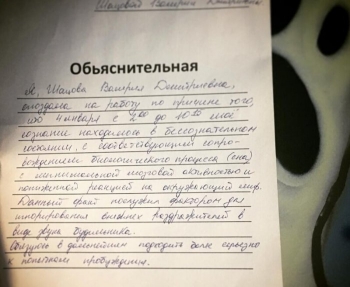 Шацовой Валерии Дмитриевны
Объяснительная
Я, Шацова Валерия Дмитриевна,
опоздала на работу по причине того,
что 4 января с 2⁰⁰ до 10⁵⁰ моё
сознание находилось в бессознательном
состоянии, с соответствующим сопро-
вождением биологического процесса (сна)
с минимальной мозговой активностью и
пониженной реакцией на окружающий мир.
Данный факт послужил фактором для
игнорирования внешних раздражителей в
виде звука будильника.
Обязуюсь в дальнейшем подходить более серьезно
к понятию пробуждения.